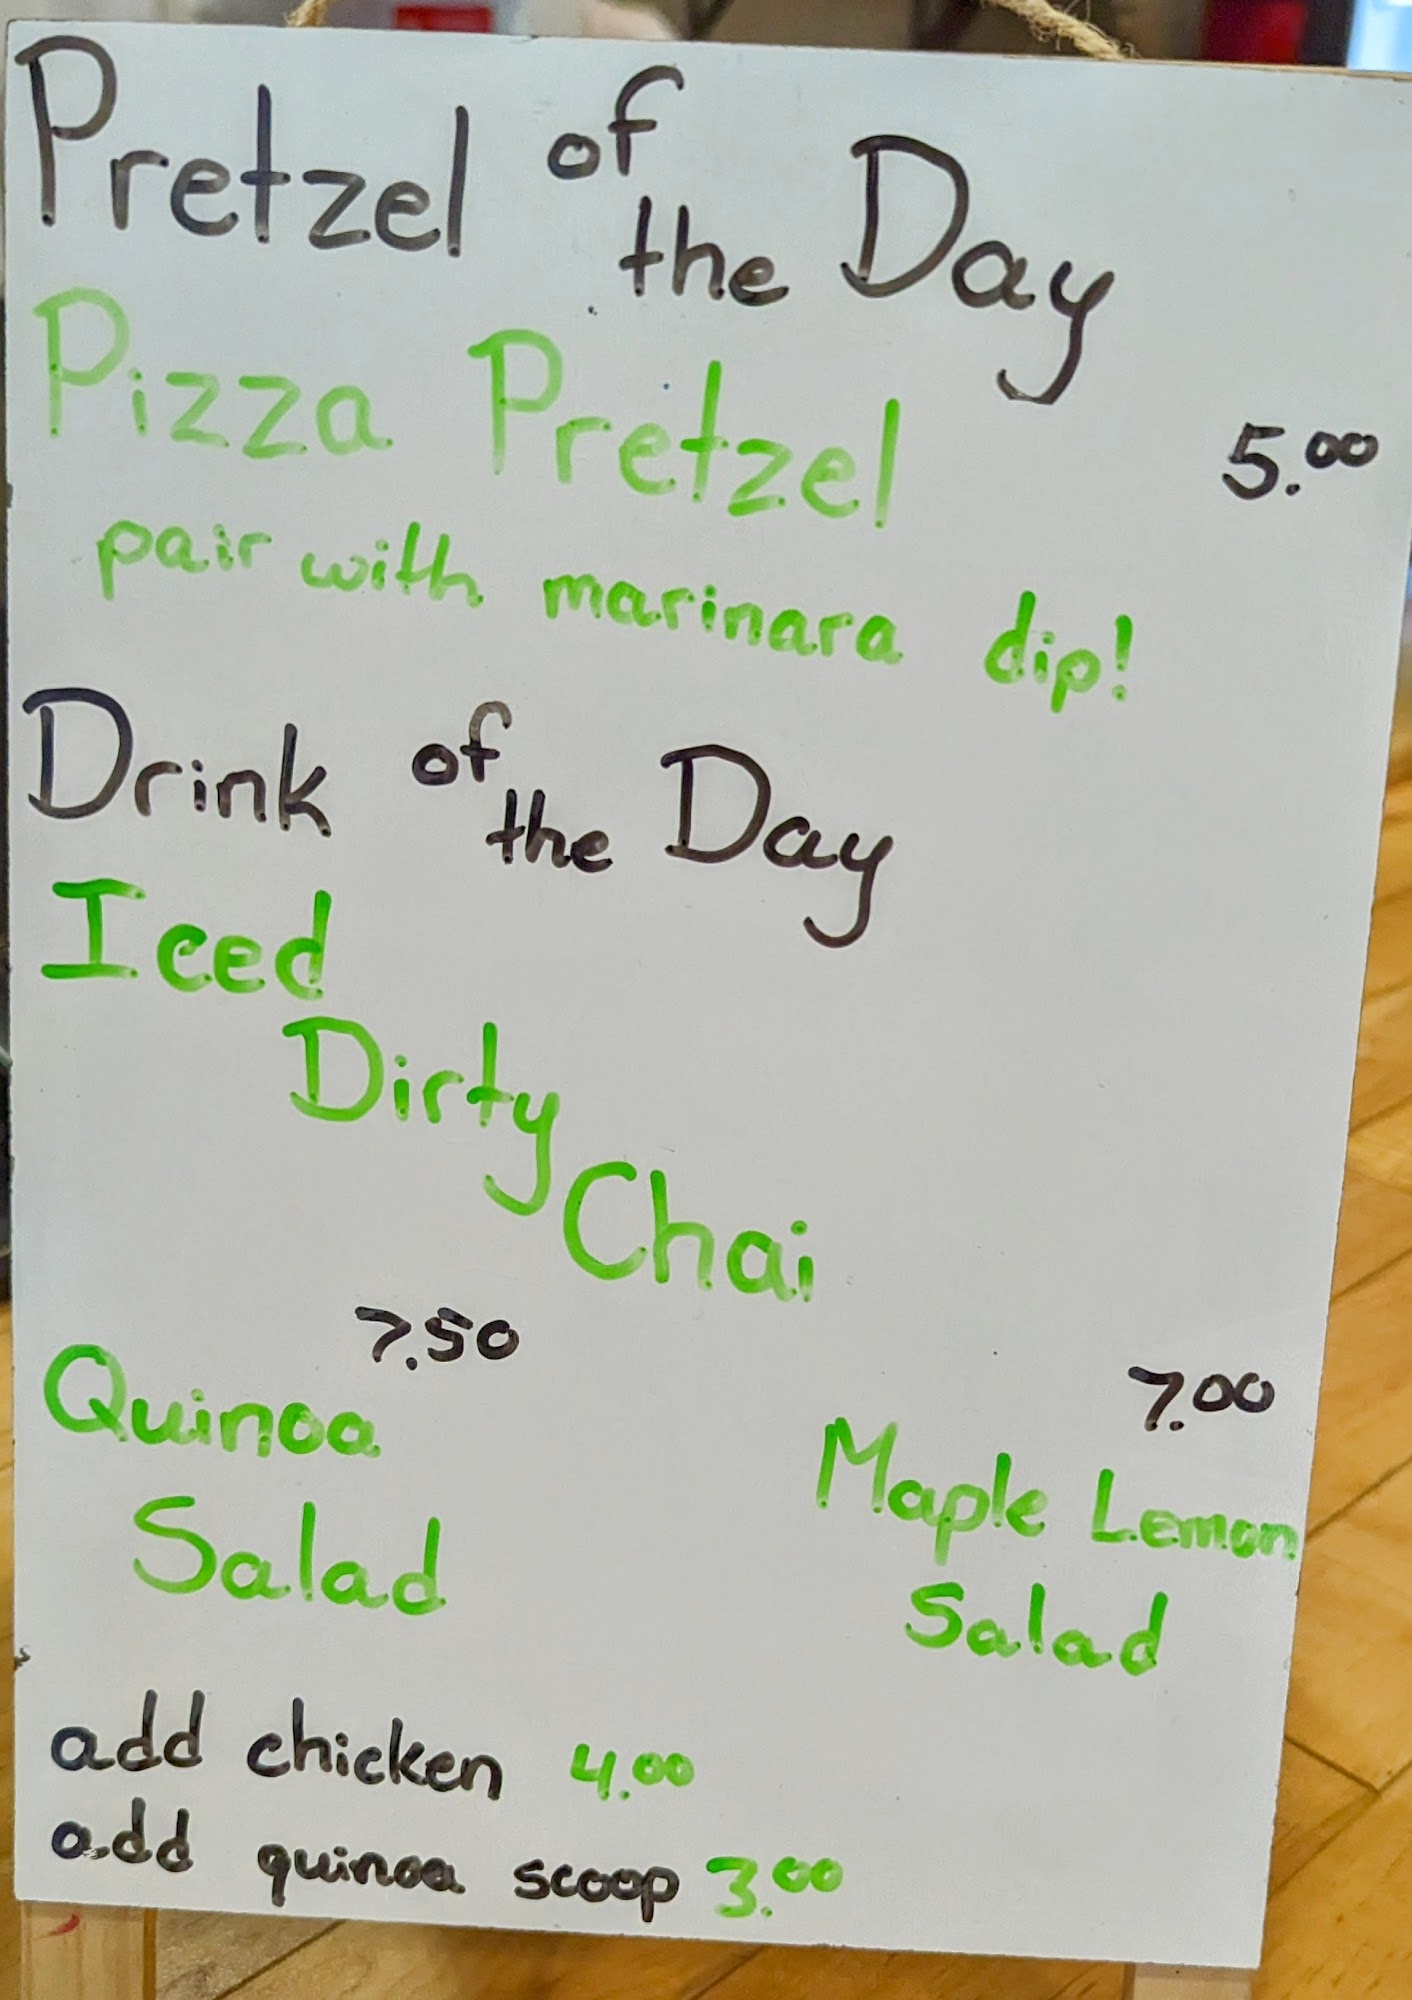 Pretzel of the Day
Pizza Pretzel 5.00
pair with marinara dip!
Drink of the Day
Iced
Dirty
Chai
7.50
Quinoa
Salad
7.00
Maple Lemon
Salad
add chicken 4.00
add quinoa scoop 3.00